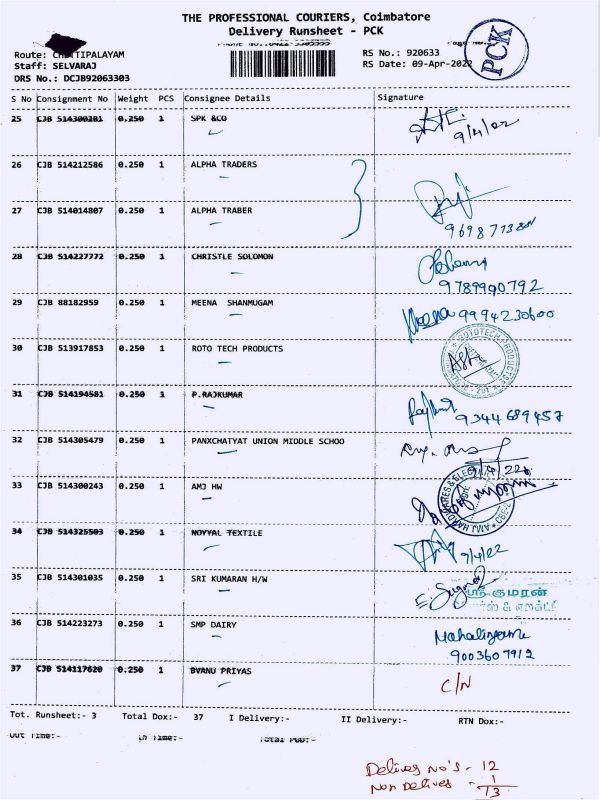 THE PROFESSIONAL COURIERS, Coimbatore
Delivery Runsheet - PCK
PCK
Staff: SELVARAJ
DRS No.: DCJB92063303
RS No.: 920633
RS Date: 09-Apr-2022
S No Consignment No Weight PCS Consignee Details Signature
25 CJB 514300281 0.250 1 SPK &CO
9/4/22
26 CJB 514212586 0.250 1 ALPHA TRADERS
27 CJB 514014807 0.250 1 ALPHA TRABER
28 CJB 514227772 0.250 1 CHRISTLE SOLOMON
9789990792
29 CJB 88182959 0.250 1 MEENA SHANMUGAM
Meena 9994230600
30 CJB 513917853 0.250 1 ROTO TECH PRODUCTS
31 CJB 514194581 0.250 1 P.RAJKUMAR
9344689457
32 CJB 514305479 0.250 1 PANXCHATYAT UNION MIDDLE SCHOO
33 CJB 514300243 0.250 1 AMJ HW
34 CJB 514325503 0.250 1 NOYYAL TEXTILE
9/4/22
35 CJB 514301035 0.250 1 SRI KUMARAN H/W
ஸ்ரீ குமரன்
36 CJB 514223273 0.250 1 SMP DAIRY
9003607912
37 CJB 514117620 0.250 1 BVANU PRIYAS
C/N
Tot. Runsheet:- 3 Total Dox:- 37 I Delivery:- II Delivery:- RTN Dox:-
Out Time:- In Time:-
Delives No's - 12
Non Delives - 1
13